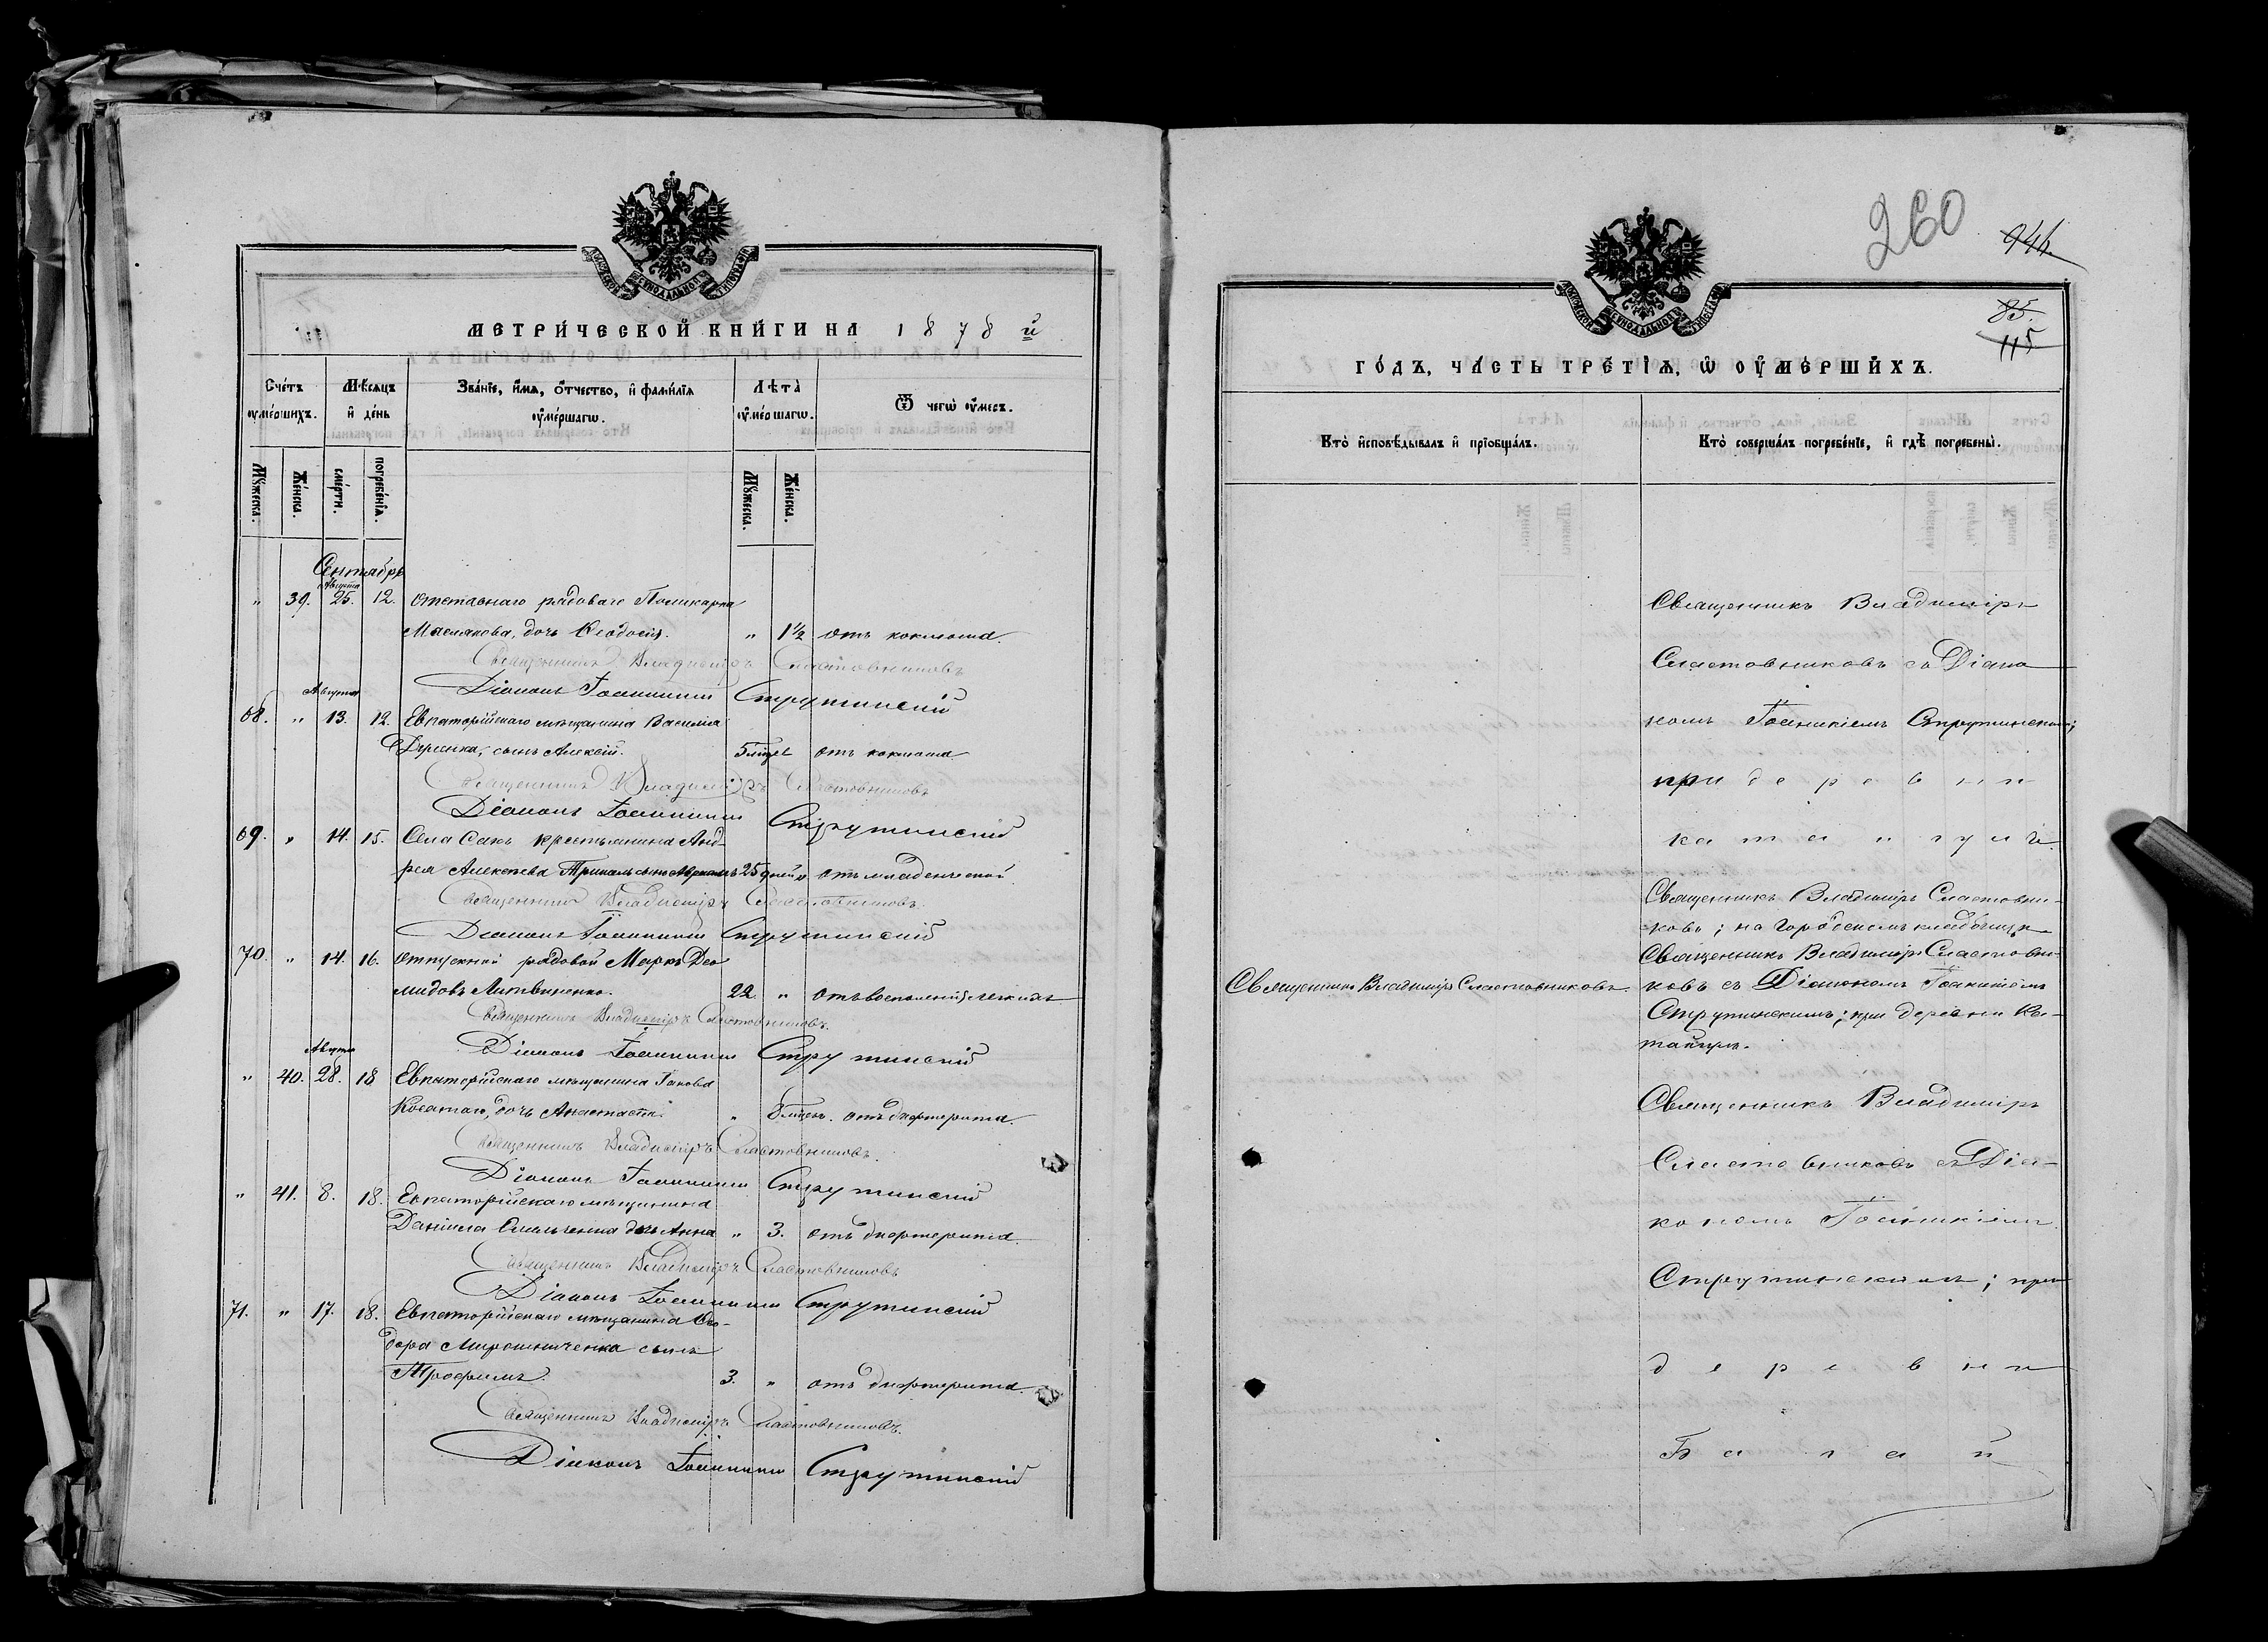 МЕТРИЧЕСКОЙ КНИГИ НА 1878 й
Счетъ умершихъ.
Мѣсяцъ и день
Званіе, имя, отчество, и фамилія умершаго.
Лѣта умершаго.
Отъ чего умеръ.
Мужеска.
Женска.
смерти.
погребенія.
Мужеска.
Женска.
Сентябрь
Августа
" 39. 25. 12. Отставнаго рядоваго Поликарпа
Маслакова, дочь Ѳеодосія. " 1½ отъ коклюша.
Священникъ Владиміръ Сластовниковъ
Діаконъ Іоанникій Струтинскій
Августа
68. " 13. 12. Евпаторійскаго мѣщанина Василія
сынъ Алексій. 5 мцев отъ коклюша
Священникъ Владиміръ Сластовниковъ
Діаконъ Іоанникій Струтинскій
69. " 14. 15. Села Сакъ крестьянина Анд-
рея Алексѣева сынъ 25 дней " отъ младенческой
Священникъ Владиміръ Сластовниковъ.
Діаконъ Іоанникій Струтинскій
70. " 14. 16. Отпускной рядовой Маркъ Део
мидовъ Литвиненко. 22 " отъ воспаленія легкихъ
Священникъ Владиміръ Сластовниковъ.
Діаконъ Іоанникій Струтинскій
Августа
" 40. 28. 18 Евпаторійскаго мѣщанина Іакова
Косатаго, дочь Анастасія. " 8 мцев. отъ дифтерита.
Священникъ Владиміръ Сластовниковъ.
Діаконъ Іоанникій Струтинскій
" 41. 8. 18. Евпаторійскаго мѣщанина
Даніила Омельченка дочь Анна " 3. отъ дифтерита.
Священникъ Владиміръ Сластовниковъ
Діаконъ Іоанникій Струтинскій
71. " 17. 18. Евпаторійскаго мѣщанина Ѳео-
дора Мирошниченка сынъ
Трофимъ. 3. " отъ дифтерита.
Священникъ Владиміръ Сластовниковъ.
Діаконъ Іоанникій Струтинскій
260
946.
85.
115
ГОДЪ, ЧАСТЬ ТРЕТІЯ, О УМЕРШИХЪ.
Кто исповѣдывалъ и пріобщалъ.
Кто совершалъ погребеніе, и гдѣ погребены.
Священникъ Владиміръ
Сластовниковъ съ Діако
номъ Іоанникіемъ Струтинскимъ;
при деревни
Катангулъ.
Священникъ Владиміръ Сластовни-
ковъ; на городскомъ кладбищѣ
Священникъ Владиміръ Сластовни-
Священникъ Владиміръ Сластовниковъ. ковъ съ Діакономъ Іоанникіемъ
Струтинскимъ; при деревни Ка-
тангулъ.
Священникъ Владиміръ
Сластовниковъ съ Діа-
кономъ Іоанникіемъ
Струтинскимъ; при
деревни
Багай